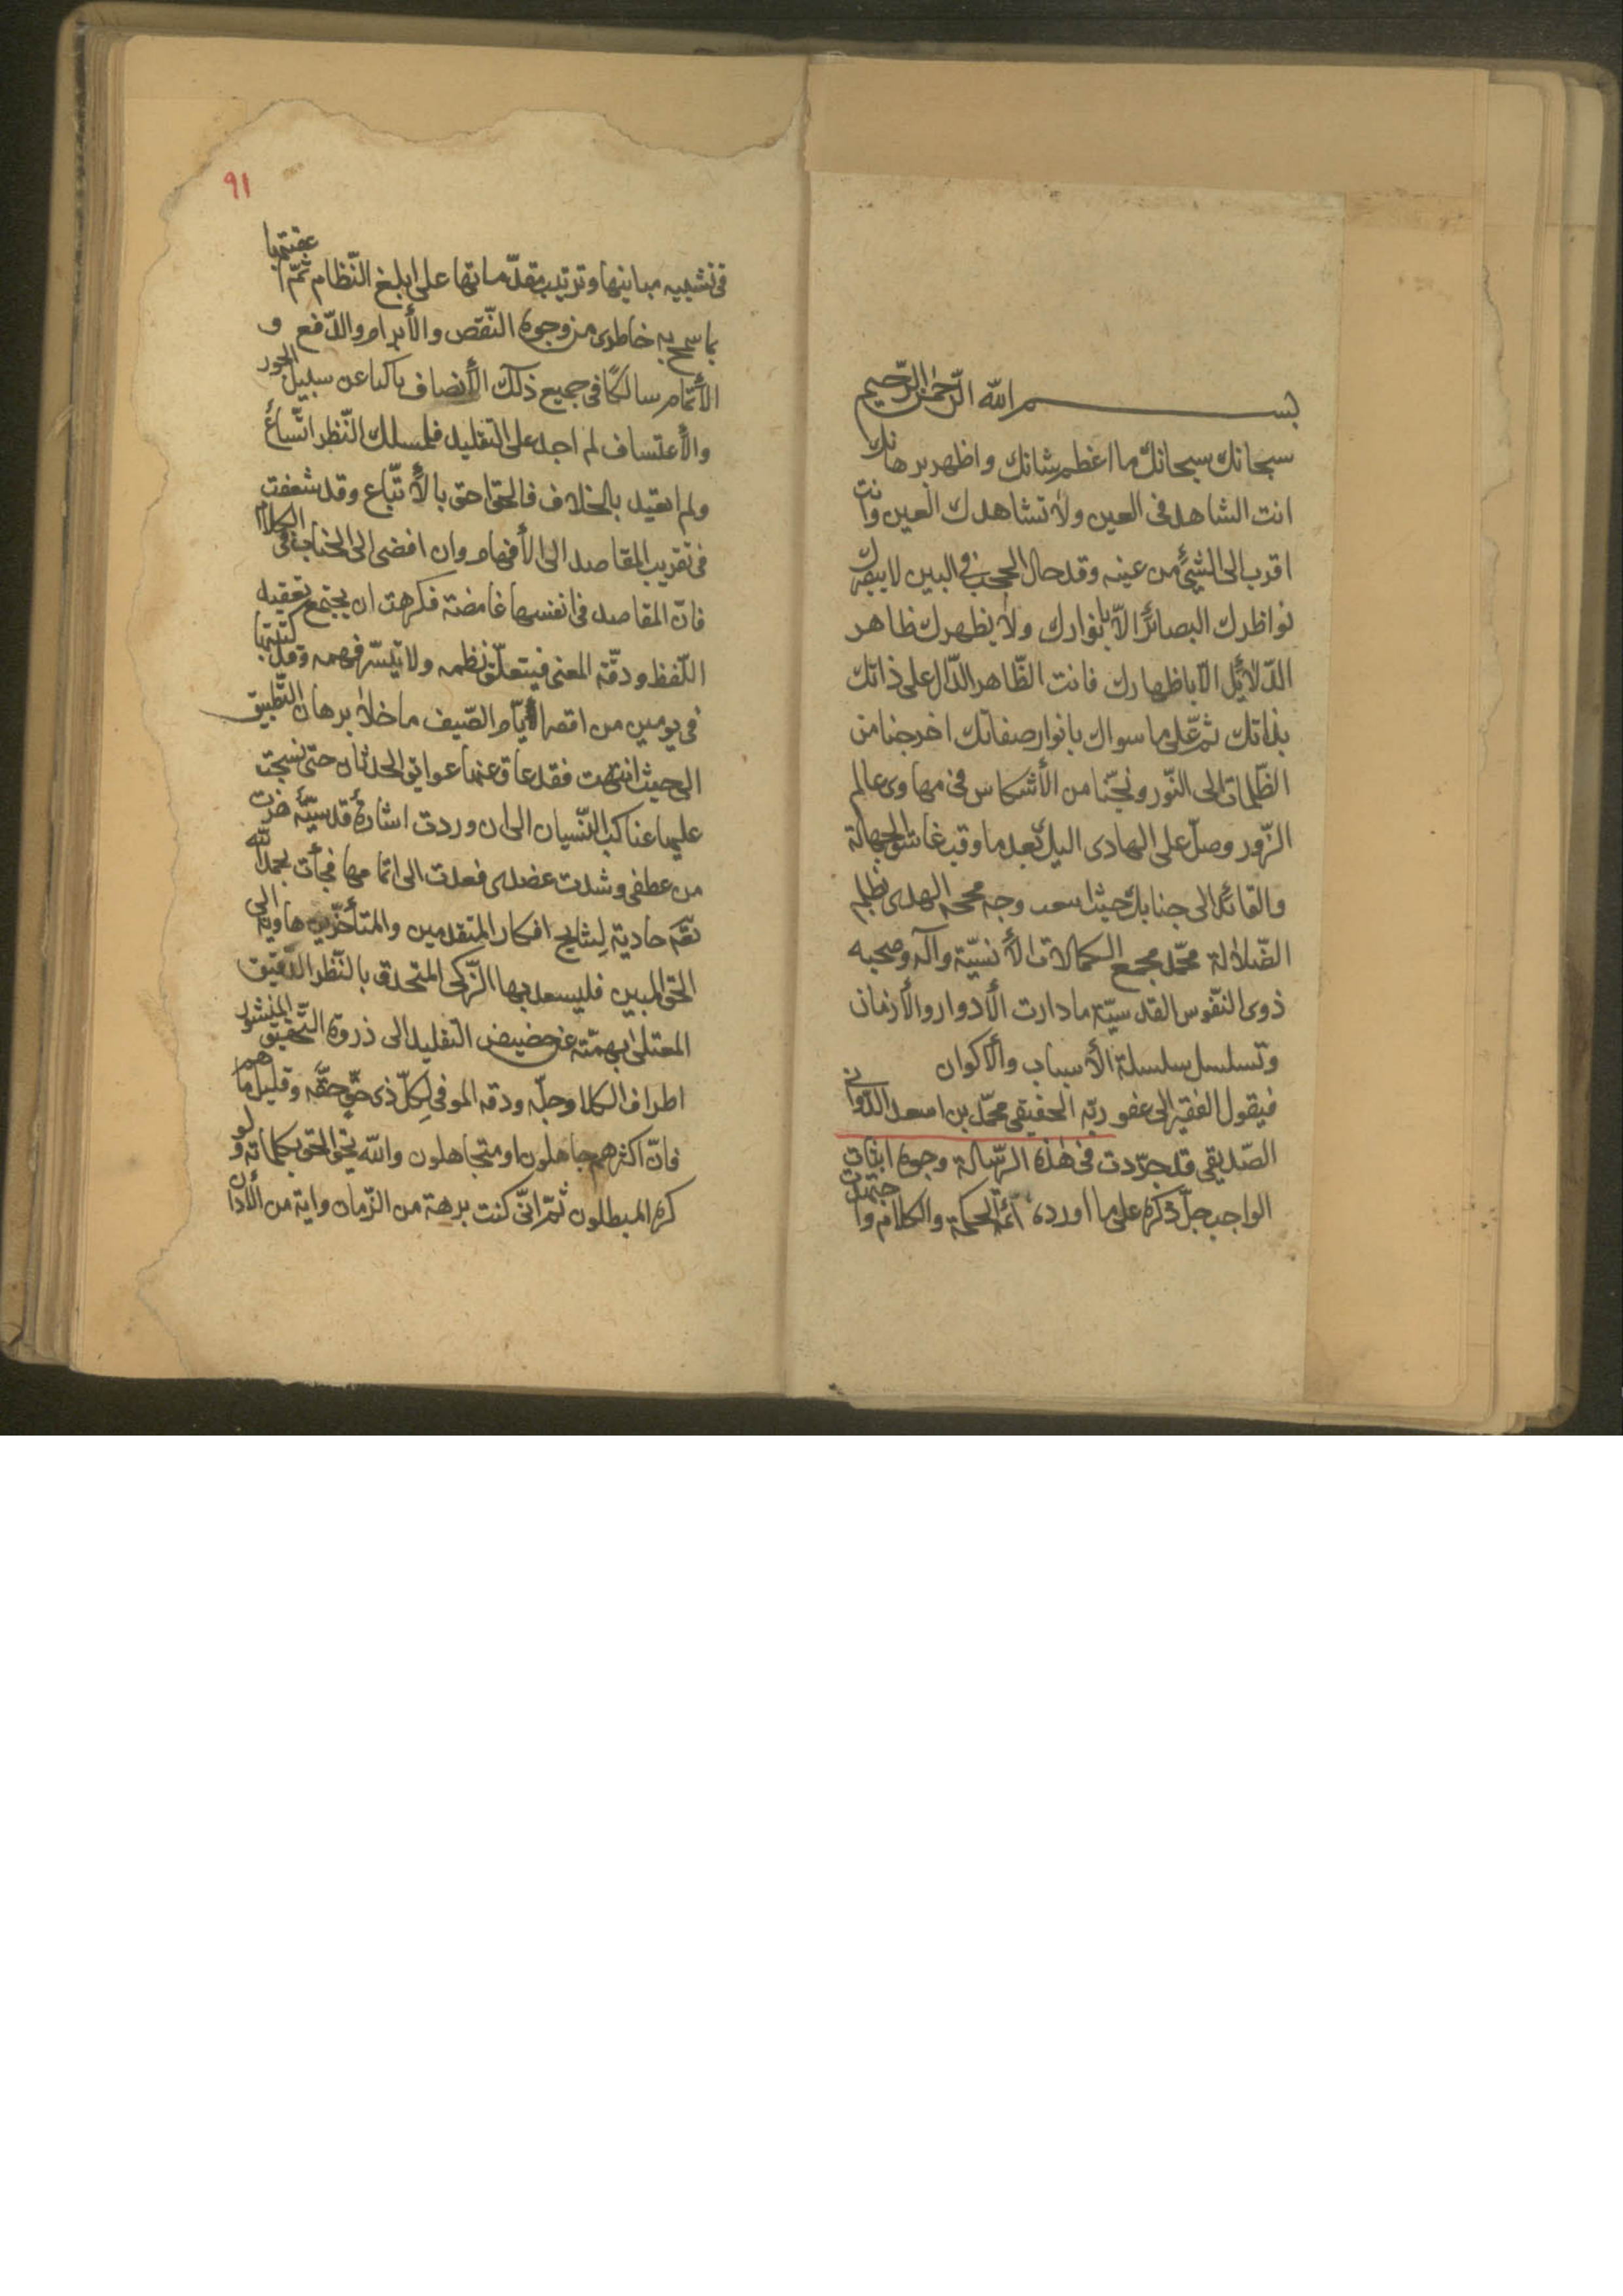 بســـــم الله الرّحمٰن الرّحيم
سبحانك سبحانك ما اعظم شانك و اظهر برهانك
انت الشاهد فى العين ولا تشاهدك العين وانت
اقرب الى الشئ من عينه وقد حال الحجب فى البين لا يبصرك
نواظرك البصائر الّا بانوارك ولا يظهرك ظاهر
الدّلائل الّا باظهارك فانت الظّاهر الدّال على ذاتك
بذاتك ثمّ على ما سواك بانوار صفاتك اخرجنا من
الظّلمات الى النّور ونجّنا من الأنتكاس فى مهاوى عالم
الزّور وصلّ على الهادى اليك بعد ما وقب غاسق الجهالة
والقائد الى جنابك حيث وجه محجة الهدى بظلم
الضّلالة محمّد مجمع الكمالات الأنسيّة وآله وصحبه
ذوى النّفوس القدسيّة ما دارت الأدوار والأزمان
وتسلسل سلسلة الأسباب والأكوان
فيقول الفقير الى عفو ربّه الحقيقى محمّد بن اسعد الدّوانى
الصّديقى قد جرّدت فى هٰذه الرّسالة وجوه اثبات
الواجب جلّ ذكره على ما اورده ائمّة الحكمة والكلام واجتهدت
٩١
فى تشييد مبانيها وترتيب مقدّماتها على ابلغ النّظام ثمّ اعقبتها
بما سمح به خاطرى من وجوه النّقص والأبرام والدّفع و
الأتمام سالكًا فى جميع ذلك الأنصاف ناكبا عن سبيل الجور
والأعتساف لم اجد على التقليد فلمسلك النّظر اتّساع
ولم اتقيد بالخلاف فالحق احق بالأتّباع وقد شغفت
فى تقريب المقاصد الى الأفهام وان افضى الى الكلام
فانّ المقاصد فى انفسها غامضة فكرهت ان يجتمع تعقيد
اللّفظ ودقّة المعنى فيتعلّق نظمه ولا يتيسّر فهمه وقد كتبتها
فى يومين من اقصر ايّام الصّيف ما خلا برهان التّطبيق
الى حيث انتهت فقد عاق عنها عوايق الحدثان حتى نسجت
عليها عناكب النّسيان الى ان وردت اشارة قدسيّة هزت
من عطفى وشدت عضدى فعدت الى اتمامها فجأت بحمد الله
حاوية لنتايج افكار المتقدمين والمتأخّرين هاوية الى
الحق المبين فليسعد بها الزّكى المتحدق بالنّظر الدّقيق
المعتلى بهمّته عن حضيض التقليد الى ذروة التّحقيق المنشور
اطراف الكلام وجلّه ودقه الموفى لكلّ ذى حقّ حقّه وقليل ما هم
فانّ اكثرهم جاهلون او متجاهلون والله يحقّ الحق بكلماته ولو
كره المبطلون ثمّ انّى كنت برهة من الزّمان وآية من الأدان